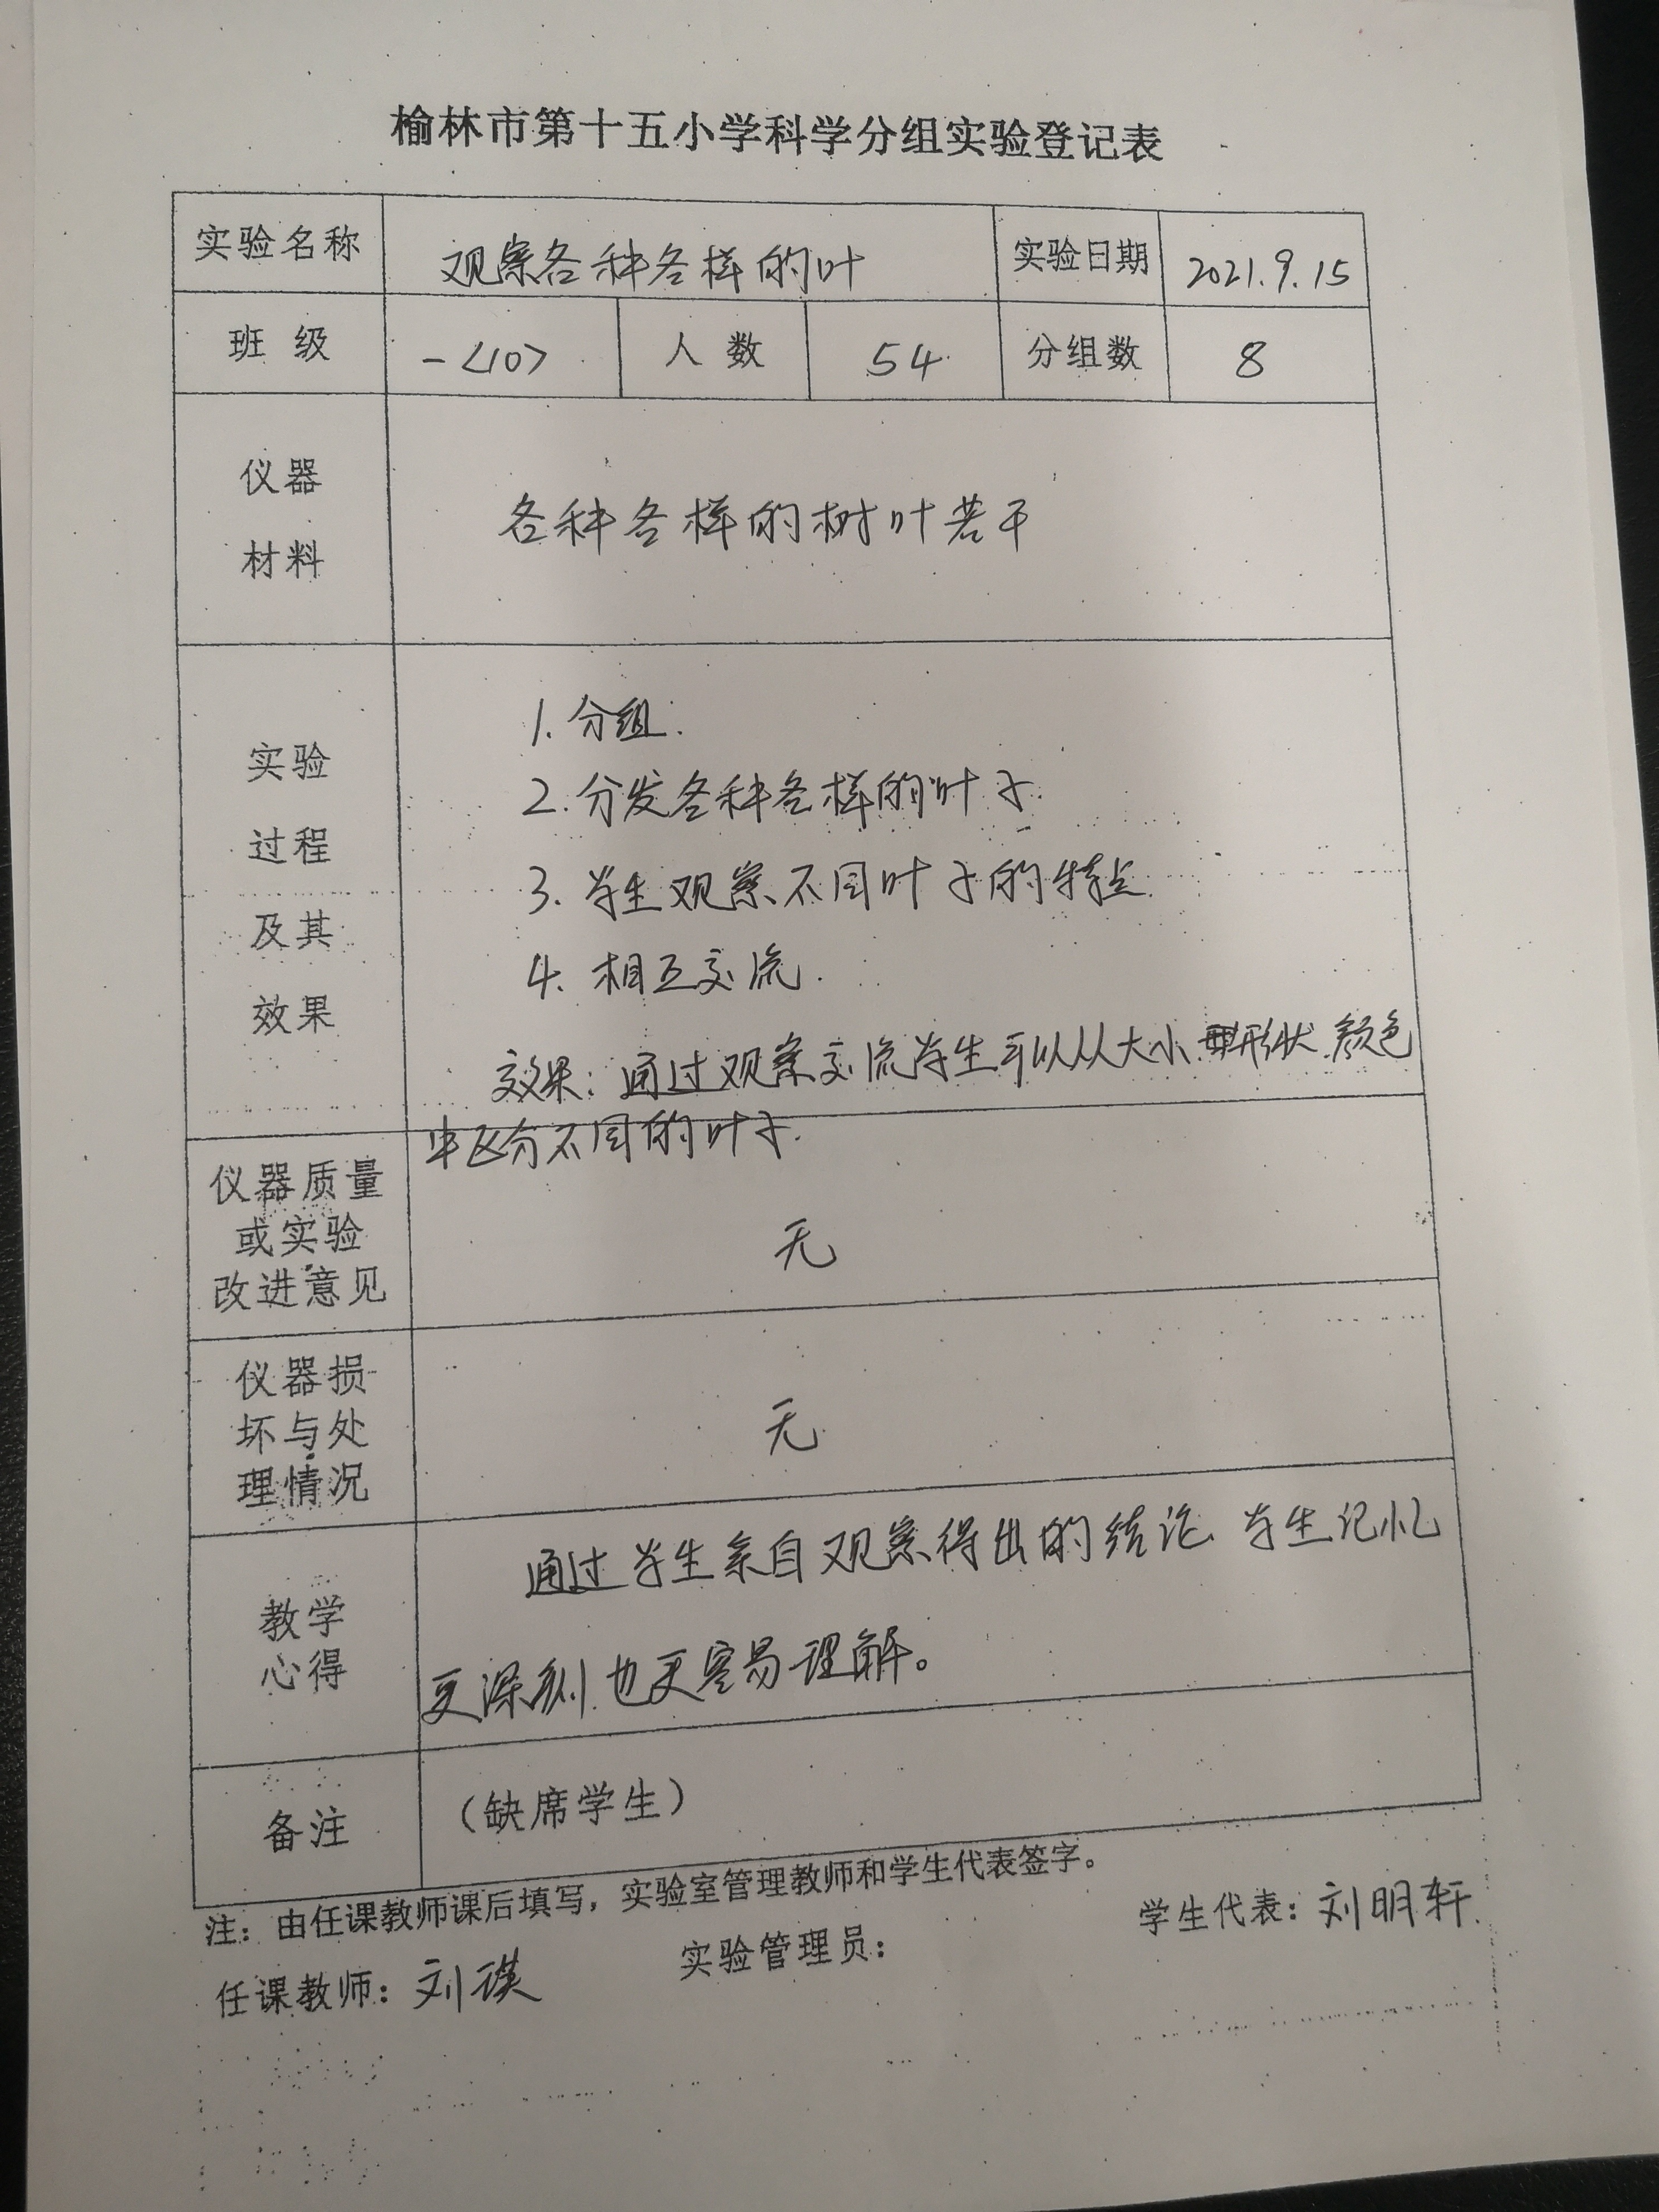 榆林市第十五小学科学分组实验登记表
实验名称 观察各种各样的叶 实验日期 2021.9.15
班 级 一<10> 人 数 54 分组数 8
仪器
材料
各种各样的树叶若干
实验
过程
及其
效果
1.分组.
2.分发各种各样的叶子.
3.学生观察不同叶子的特点
4.相互交流.
效果:通过观察交流学生可以从大小、形状、颜色
中区分不同的叶子.
仪器质量
或实验
改进意见
无
仪器损
坏与处
理情况
无
教学
心得
通过学生亲自观察得出的结论、学生记忆
更深刻.也更容易理解。
备注 (缺席学生)
注:由任课教师课后填写,实验室管理教师和学生代表签字。
任课教师:刘瑛 实验管理员: 学生代表:刘明轩.